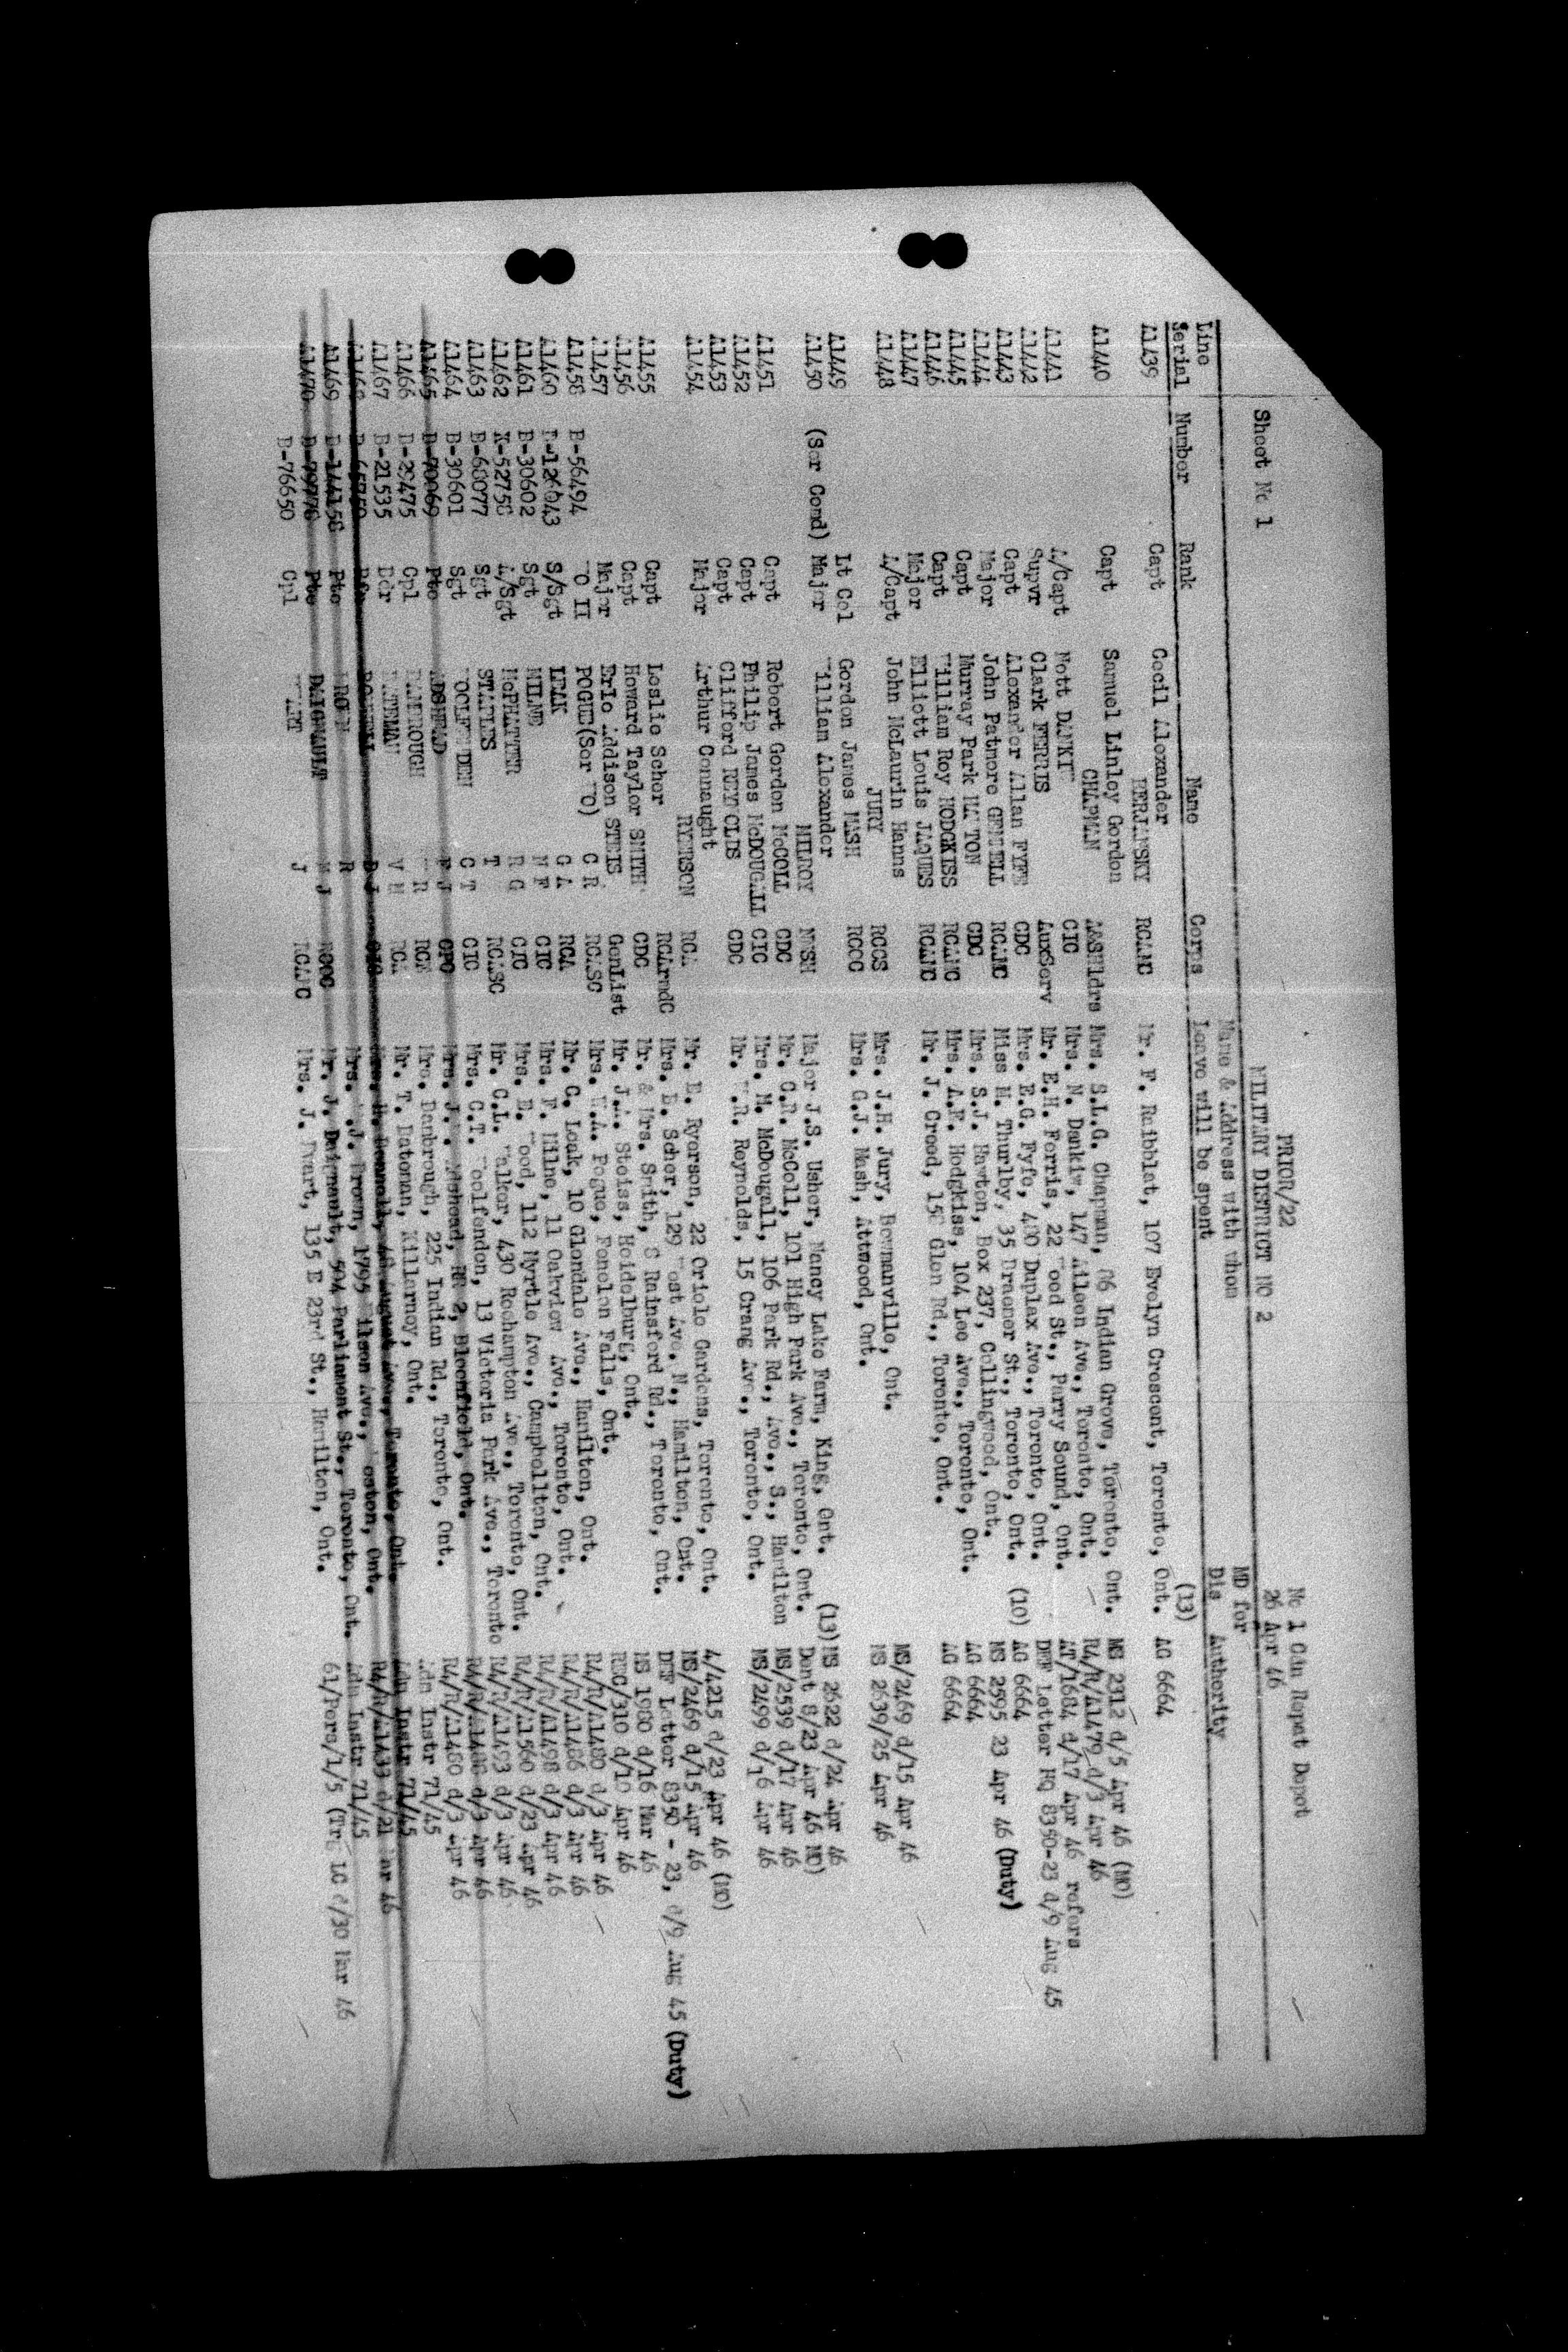 Sheet No 1
PRIOR/22
MILITARY DISTRICT NO 2
No 1 Cdn Repat Depot
26 Apr 46
Line Serial Number Rank Name Corps Name & Address with whom Leave will be spent MD for Dis Authority
A1439 Capt Cecil Alexander BERJANSKY RCAMC Mr. F. Raibblat, 107 Evelyn Crescent, Toronto, Ont. (13) AG 6664
A1440 Capt Samuel Linley Gordon CHAPMAN A&SHldrs Mrs. S.L.G. Chapman, 86 Indian Grove, Toronto, Ont. MS 2312 d/5 Apr 46 (MO)
A1441 A/Capt Mott DANKIW CIC Mrs. N. Dankiw, 147 Aileen Ave., Toronto, Ont. RA/R/A1479 d/3 Apr 46
A1442 Supvr Clark FERRIS AuxServ Mr. E.H. Ferris, 22 Wood St., Parry Sound, Ont. AT/1684 d/17 Apr 46 refers
A1443 Capt Alexander Allan FYFE CDC Mrs. E.G. Fyfe, 480 Duplex Ave., Toronto, Ont. DEF Letter HQ 8350-23 d/9 Aug 45
A1444 Major John Patmore GEMMELL RCAMC Miss M. Thurlby, 35 Bremner St., Toronto, Ont. (10) AG 6664
A1445 Capt Murray Park HAWTON CDC Mrs. S.J. Hawton, Box 237, Collingwood, Ont. MS 2595 23 Apr 46 (Duty)
A1446 Capt William Roy HODGKISS RCAMC Mrs. A.F. Hodgkiss, 104 Lee Ave., Toronto, Ont. AG 6664
A1447 Major Elliott Louis JAQUES RCAMC Mr. J. Creed, 158 Glen Rd., Toronto, Ont. AG 6664
A1448 A/Capt John McLaurin Hanns JURY RCCS Mrs. J.H. Jury, Bowmanville, Ont. MS/2469 d/15 Apr 46
A1449 Lt Col Gordon James MASH RCOC Mrs. G.J. Mash, Attwood, Ont. MS 2639/25 Apr 46
A1450 (Ser Cond) Major William Alexander MILROY Major J.S. Usher, Nancy Lake Farm, King, Ont. (13) MS 2622 d/24 Apr 46
A1451 Capt Robert Gordon McCOLL CDC Mr. C.R. McColl, 101 High Park Ave., Toronto, Ont. Dent 8/23 Apr 46 MO)
A1452 Capt Philip James McDOUGALL CIC Mrs. M. McDougall, 106 Park Rd., Ave., S., Hamilton MS/2539 d/17 Apr 46
A1453 Capt Clifford REYNOLDS CDC Mr. W.R. Reynolds, 15 Crang Ave., Toronto, Ont. MS/2499 d/16 Apr 46
A1454 Major Arthur Connaught RYERSON RCA Mr. E. Ryerson, 22 Oriole Gardens, Toronto, Ont. A/4215 d/23 Apr 46 (MO)
A1455 Capt Leslie Scher RCArmdC Mrs. B. Scher, 129 West Ave. N., Hamilton, Ont. MS/2469 d/15 Apr 46
A1456 Capt Howard Taylor SMITH CDC Mr. & Mrs. Smith, 8 Rainsford Rd., Toronto, Ont. DEF Letter 8350 - 23, d/9 Aug 45 (Duty)
A1457 Major Erle Addison STEIS GenList Mr. J.A. Steiss, Heidelburg, Ont. MS 1980 d/16 Mar 46
A1458 B-56494 WO II POGUE(Sor WO) C R RCASC Mrs. W.A. Pogue, Fenelon Falls, Ont. REC/310 d/10 Apr 46
A1460 B-126043 S/Sgt LEAK G A RCA Mr. C. Leek, 10 Glendale Ave., Hamilton, Ont. RA/R/A1480 d/3 Apr 46
A1461 B-30602 Sgt MILNE N F CIC Mrs. F. Milne, 11 Oakview Ave., Toronto, Ont. RA/R/A1486 d/3 Apr 46
A1462 K-52758 A/Sgt McPHATTER R G CIC Mrs. B. Wood, 112 Myrtle Ave., Campbellton, Ont. RA/R/A1498 d/3 Apr 46
A1463 B-68077 Sgt STAPLES T RCASC Mr. C.L. Walker, 430 Roehampton Ave., Toronto, Ont. RA/R/A1560 d/23 Apr 46
A1464 B-30601 Sgt WOOLFENDEN C T CIC Mrs. C.T. Woolfenden, 13 Victoria Park Ave., Toronto RA/R/A1493 d/3 Apr 46
A1465 B-70069 Pte ADSHEAD F J CPC Mrs. J. Adshead, RR 2, Bloomfield, Ont. RA/R/A1488 d/3 Apr 46
A1466 B-29475 Cpl BANBROUGH R RCE Mrs. Banbrough, 225 Indian Rd., Toronto, Ont. RA/R/A1480 d/3 Apr 46
A1467 B-21535 Bdr BATEMAN V M RCA Mr. T. Bateman, Killarney, Ont. Adm Instr 71/45
A1468 B-65750 D J CIC Toronto, Ont. Adm Instr 71/45
A1469 B-144158 Pte BROWN R Mrs. W.J. Brown, 1795 Wilson Ave., Weston, Ont. RA/R/A1433 d/21 Mar 46
A1470 B-79776 Pte DAIGNAULT M J RCOC Mr. J. Daignault, 504 Parliament St., Toronto, Ont. Adm Instr 71/45
B-76650 Cpl EWART J RCAMC Mrs. J. Ewart, 135 E 23rd St., Hamilton, Ont. 61/Pers/1/5 (Trg LC d/30 Mar 46